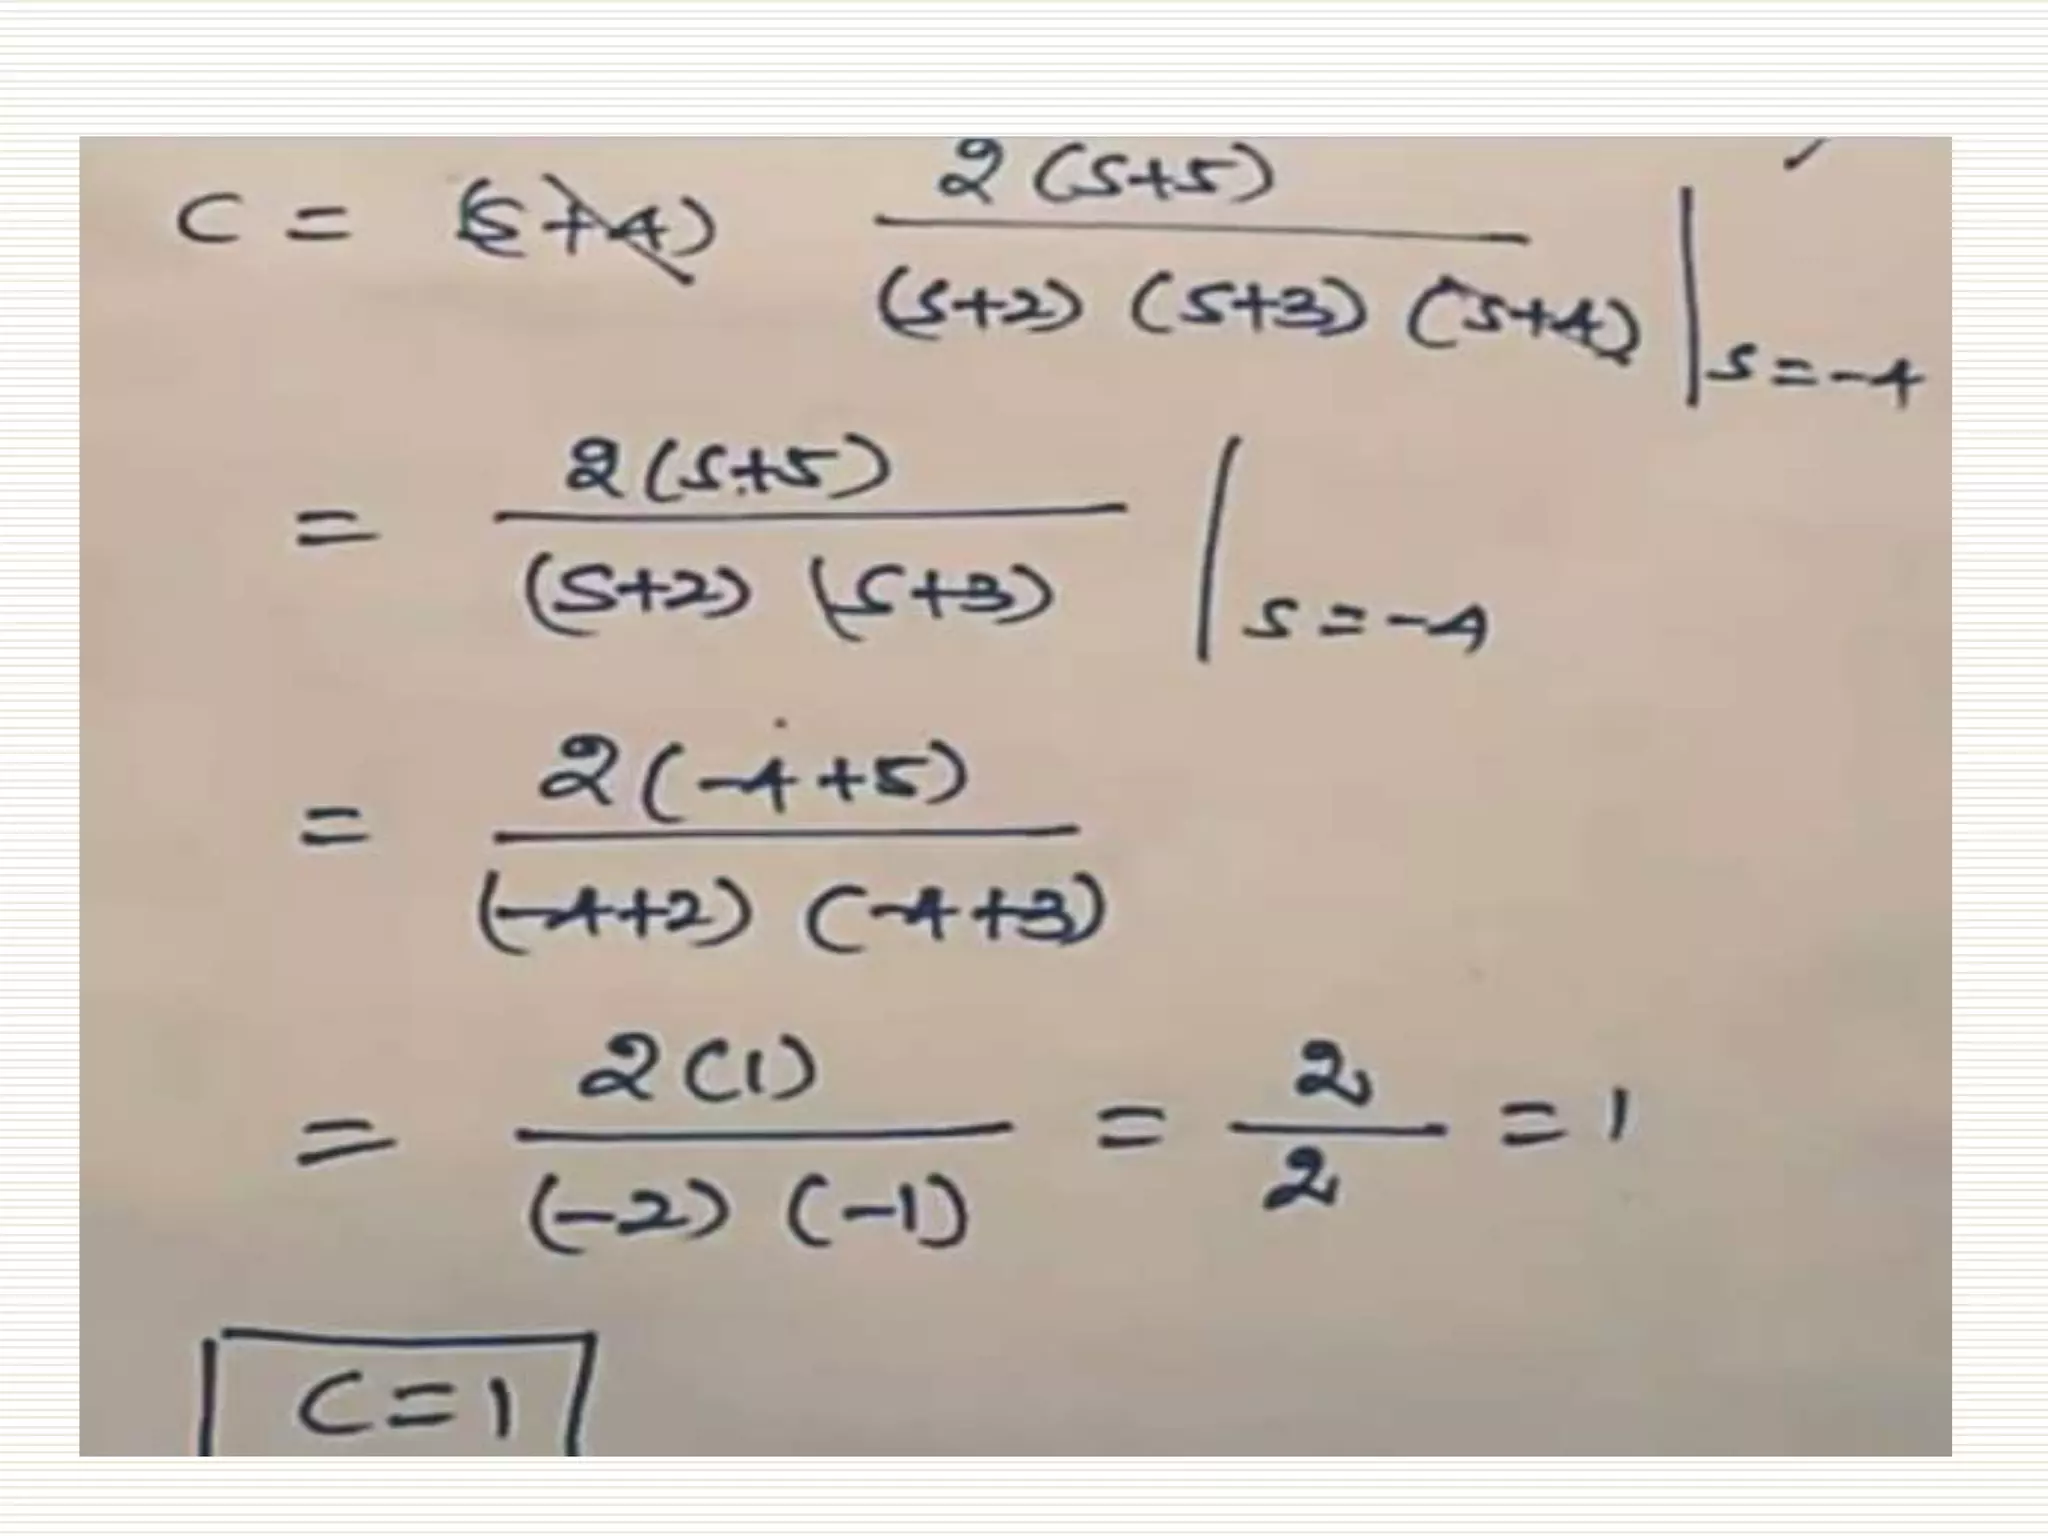 C = (S+4) 2(S+5) / (S+2) (S+3) (S+4) | S=-4
= 2(S+5) / (S+2) (S+3) | S=-4
= 2(-4+5) / (-4+2) (-4+3)
= 2(1) / (-2) (-1) = 2 / 2 = 1
C=1